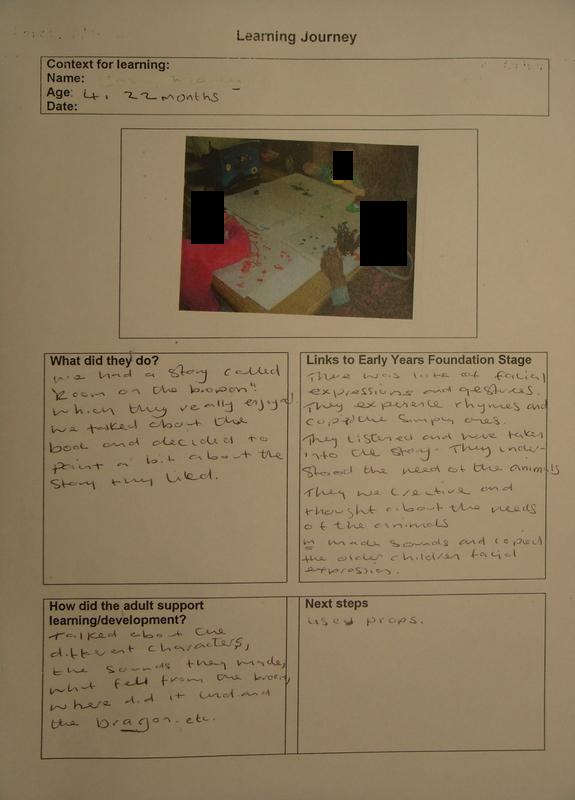 Learning Journey
Context for learning:
Name:
Age: 4, 22 months
Date:
What did they do?
we had a story called
"Room on the broom"
which they really enjoyed.
we talked about the
book and decided to
paint a bit about the
Story they liked.
Links to Early Years Foundation Stage
There was lots of facial
expressions and gestures.
They experience rhymes and
copied the simple ones.
They listened and have taken
into the story. They under-
stood the need of the animals
They we creative and
thought about the needs
of the animals
made sounds and copied
the older children facial
expression.
How did the adult support
learning/development?
talked about the
different characters,
the sounds they made,
what fell from the broom,
where did it land and
the dragon. etc.
Next steps
used props.